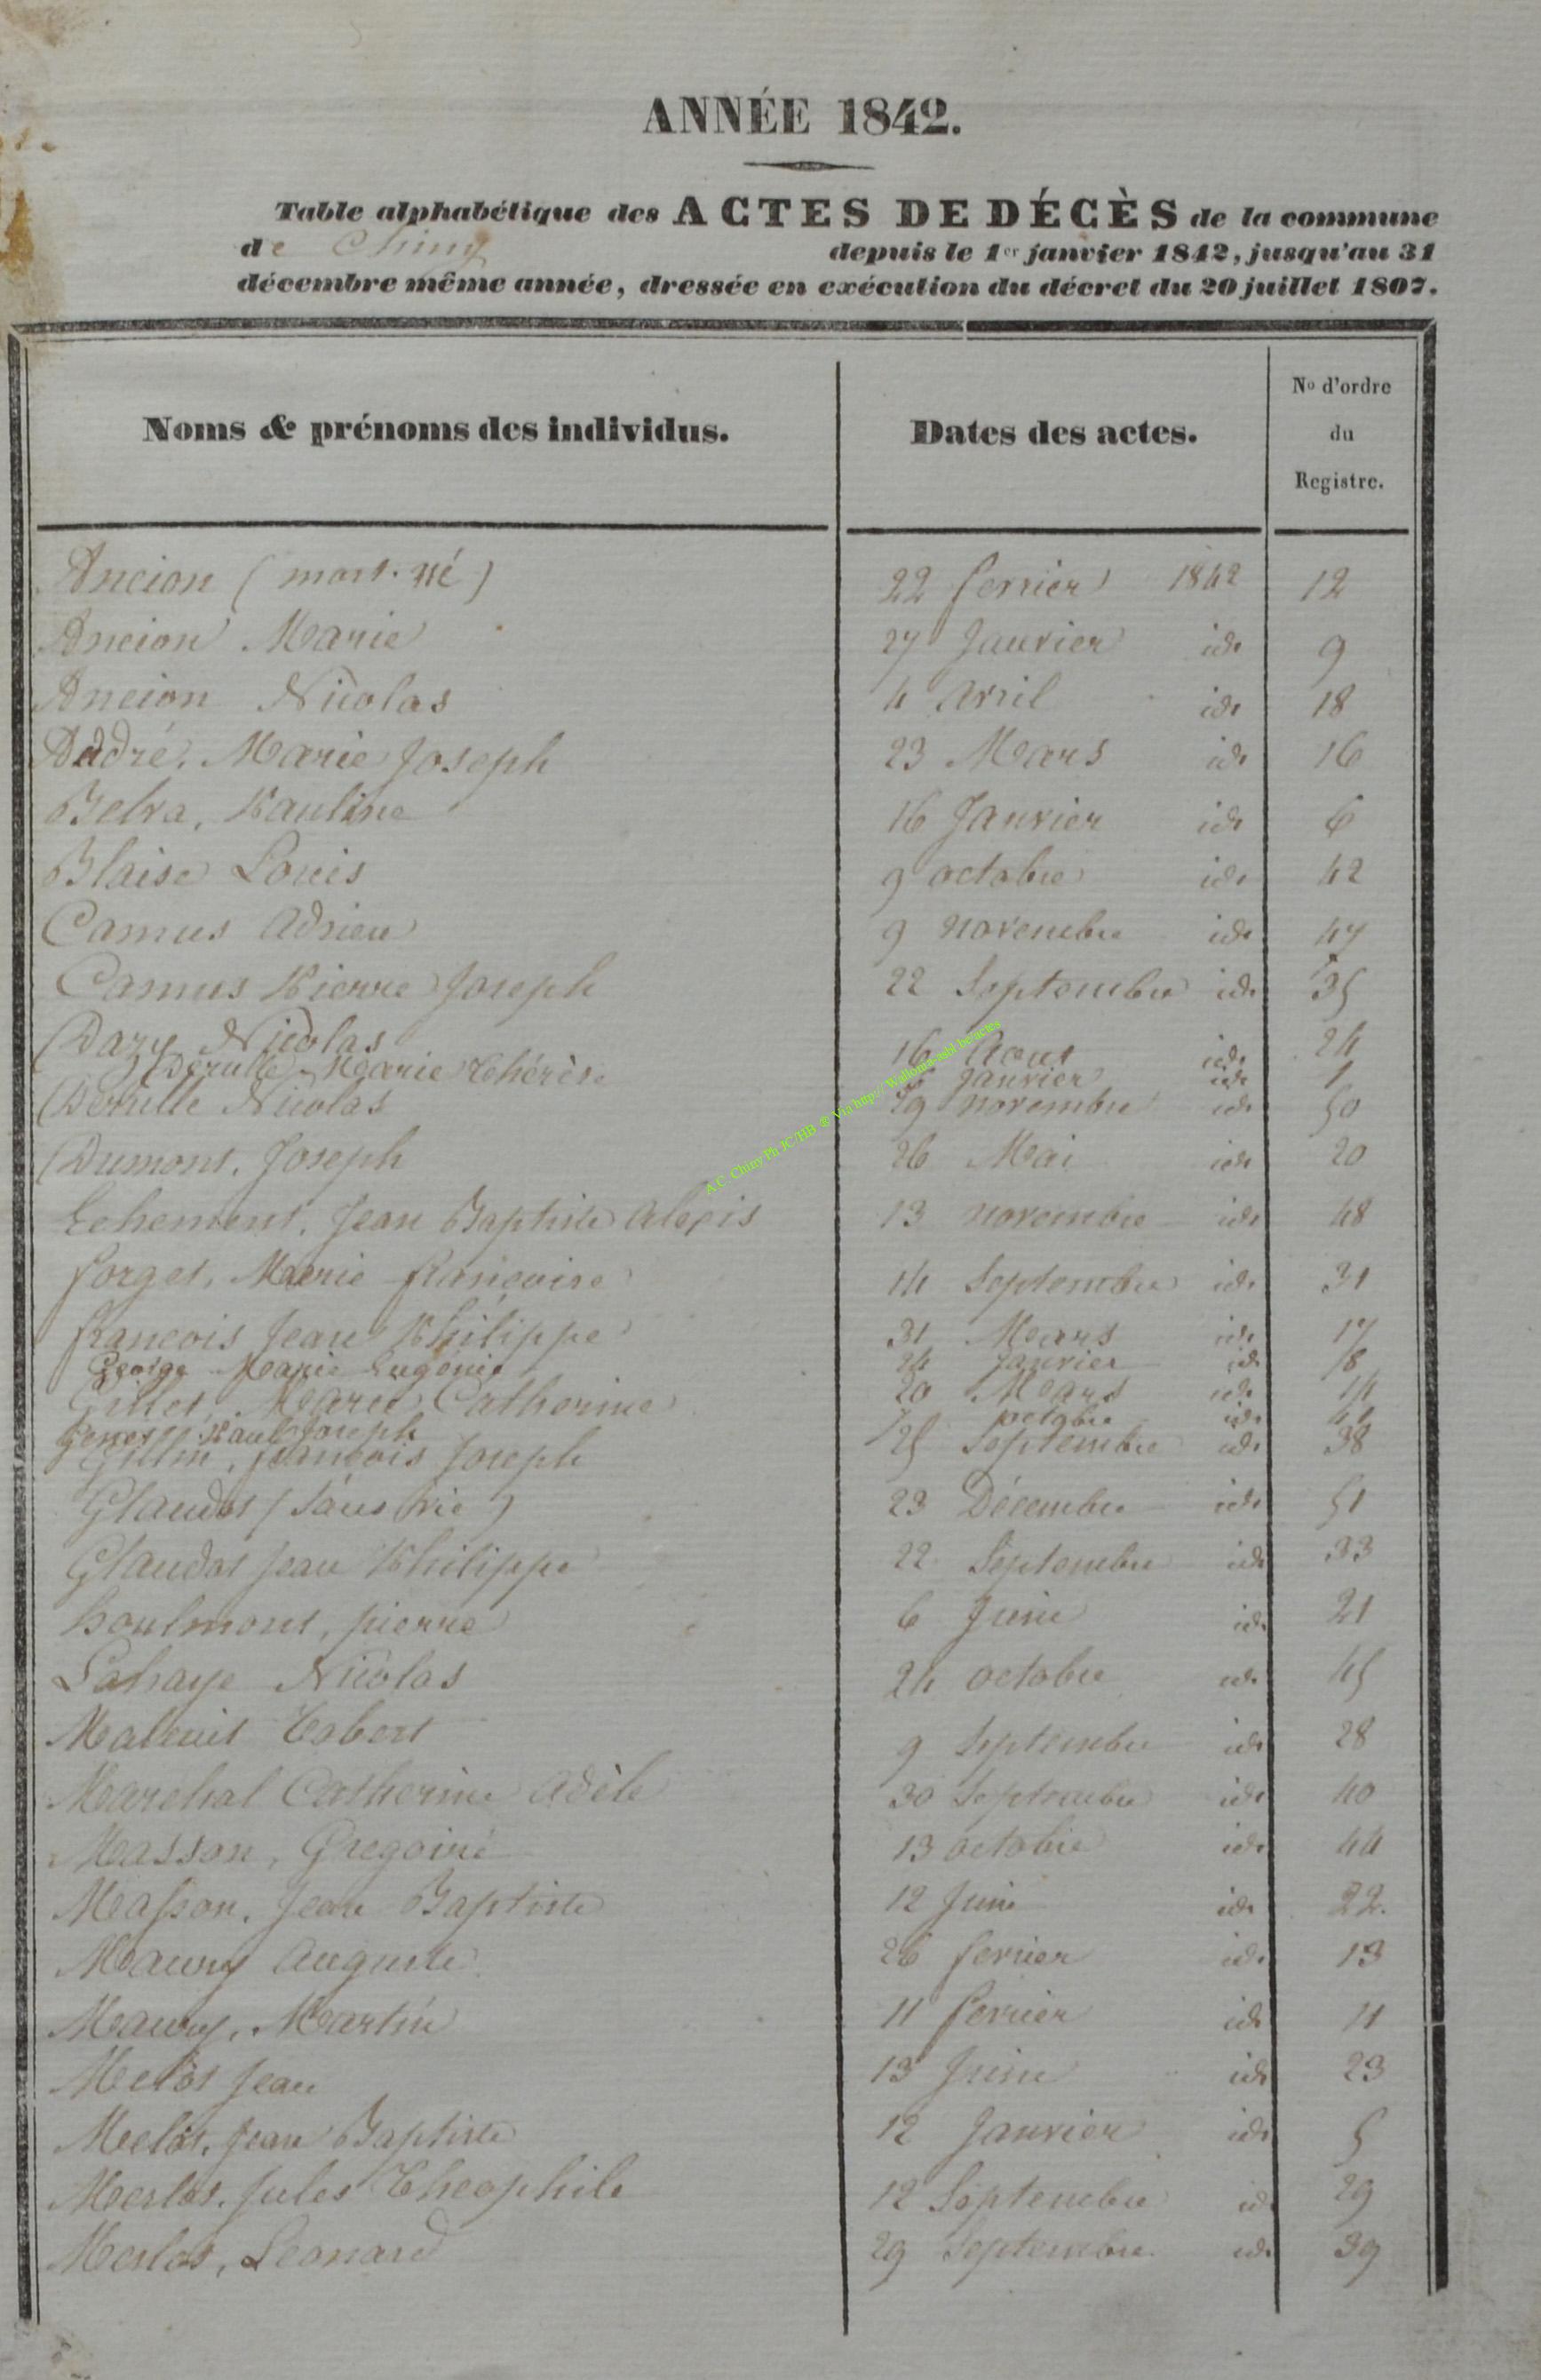 ANNÉE 1842.
Table alphabétique des ACTES DE DÉCÈS de la commune
de Chiny depuis le 1er janvier 1842, jusqu'au 31
décembre même année, dressée en exécution du décret du 20 juillet 1807.
Noms & prénoms des individus. Dates des actes. No d'ordre du Registre.
Ancion (mort-né) 22 fevrier 1842 12
Ancion Marie 27 Janvier id. 9
Ancion Nicolas 4 avril id. 18
Marie Joseph 23 Mars id. 16
Belva, Pauline 16 Janvier id. 6
Blaise Louis 9 octobre id. 42
Camus Adrien 9 novembre id. 47
Camus Pierre Joseph 22 Septembre id. 35
Dary Nicolas 16 Aout id. 24
Derulle Marie Thérèse Janvier id. 1
Derulle Nicolas 29 novembre id. 50
Dumont, Joseph 26 Mai id. 20
Echement, Jean Baptiste Alexis 13 novembre id. 48
forget, Marie françoise 14 Septembre id. 31
françois Jean Philippe 31 Mars id. 17
George Marie Eugénie 24 Janvier id. 8
Gillet, Marie Catherine 20 Mars id. 14
Paul Joseph octobre id. 41
françois Joseph 25 Septembre id. 38
Glaudot (sans vie) 23 Décembre id. 51
Glaudot Jean Philippe 22 Septembre id. 33
houlmont, pierre 6 Juin id. 21
Lahaye Nicolas 24 octobre id. 45
9 Septembre id. 28
Marechal Catherine Adèle 30 Septembre id. 40
Masson, Gregoire 13 octobre id. 44
Masson, Jean Baptiste 12 Juin id. 22.
Maury Auguste 26 fevrier id. 13
Maury, Martin 11 fevrier id. 11
Melot Jean 13 Juin id. 23
Melot, Jean Baptiste 12 Janvier id. 5
Merlot, Jules Theophile 12 Septembre id. 29
Merlot, Leonard 29 Septembre id. 39